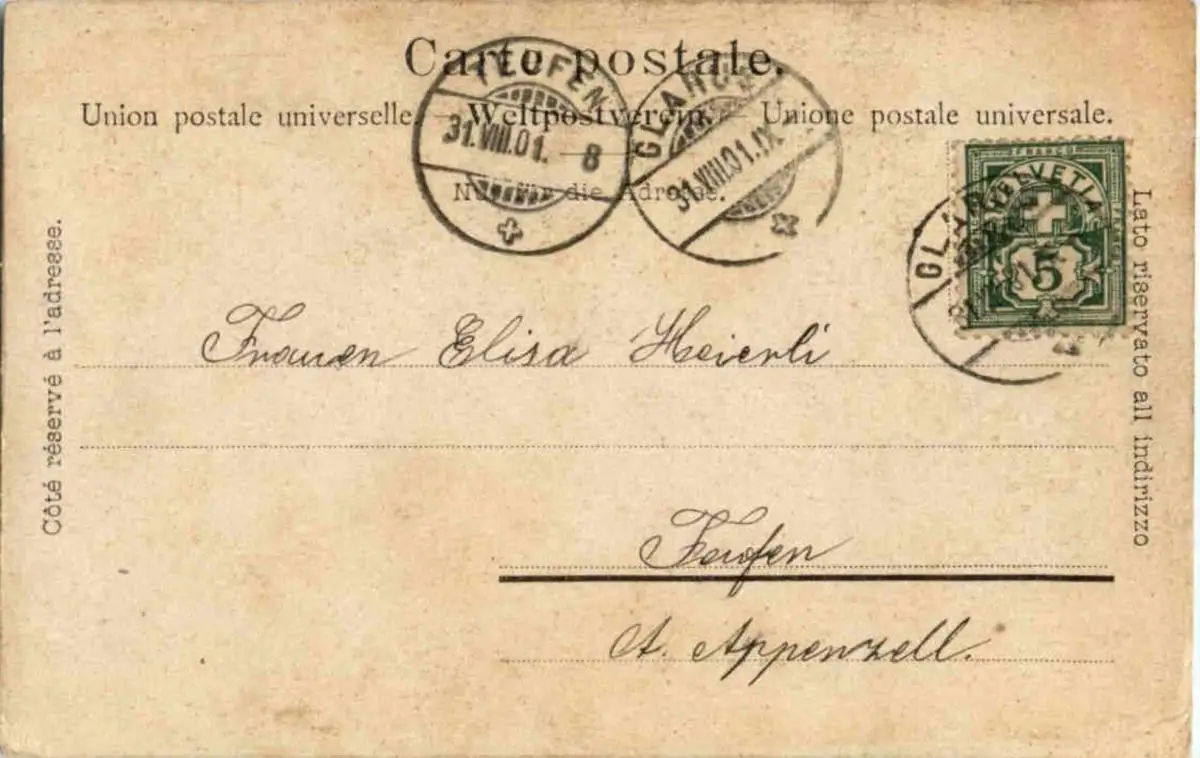 Carte postale.
Union postale universelle. — Weltpostverein. — Unione postale universale.
Nur für die Adresse.
TEUFEN
31.VIII.01. 8
GLARUS
31.VIII.01.IX
FRANCO
HELVETIA
5
GLARUS
Côté réservé à l'adresse.
Lato riservato all indirizzo
Frauen Elisa Heierli
Teufen
A. Appenzell.